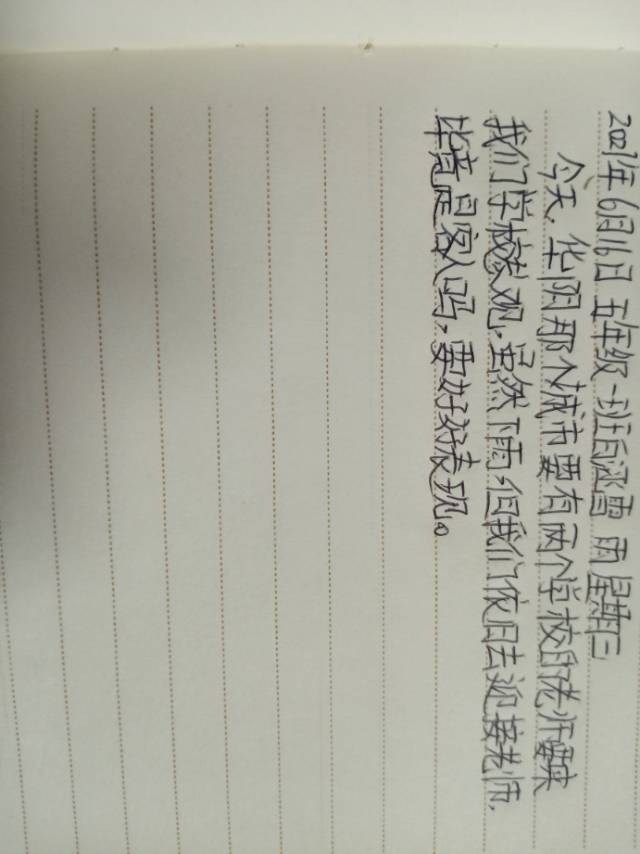 2021年6月16日 五年级一班 涵雪 雨 星期三
今天,华阴那个城市要有两个学校的老师要来
我们学校参观,虽然下雨,但我们依旧去迎接老师,
毕竟是客人吗,要好好表现。